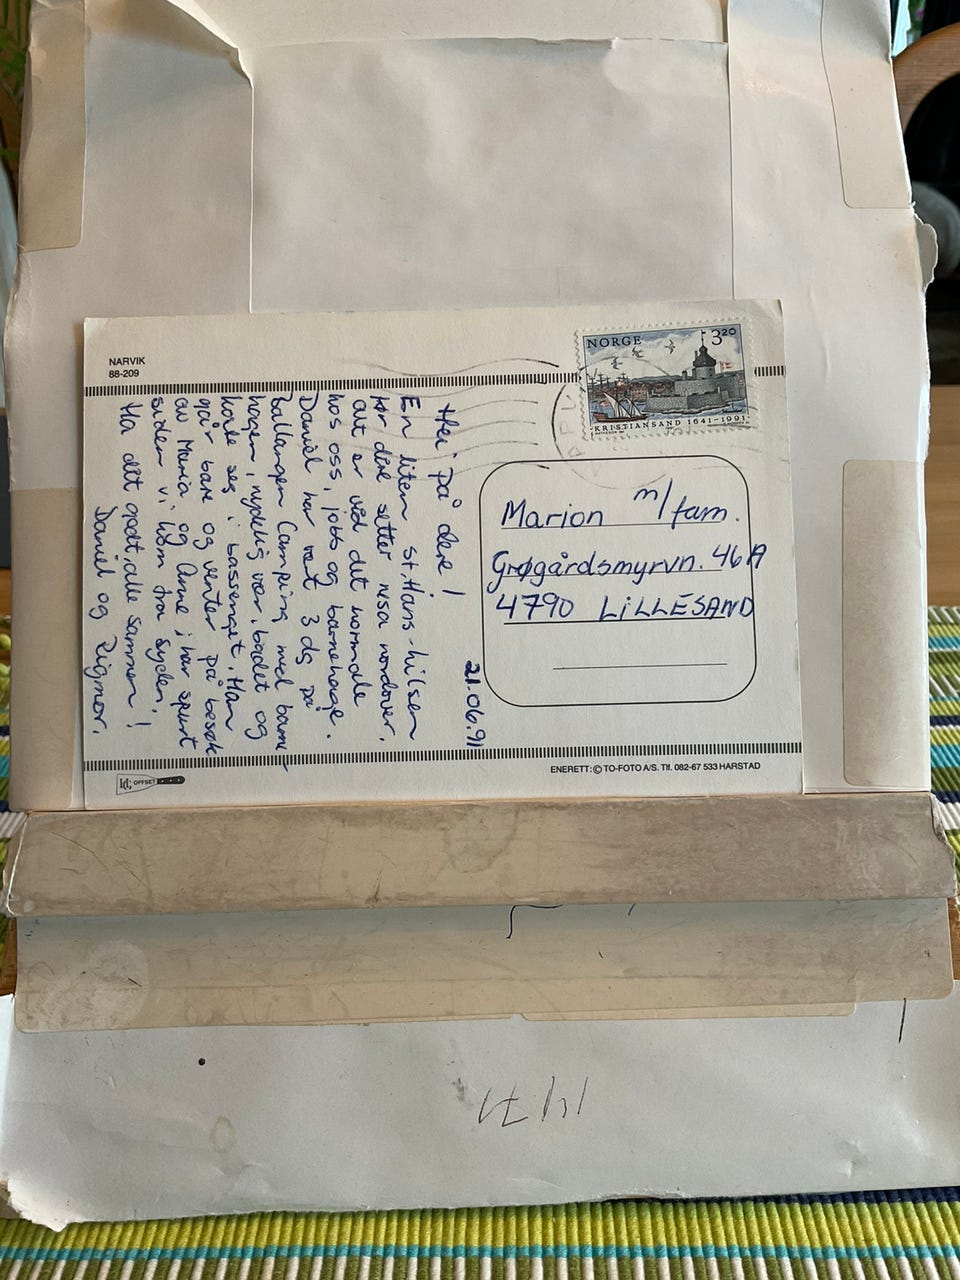 NARVIK
88-209
NORGE 3 20
KRISTIANSAND 1641-1991
21.06.91
Hei på dere!
En liten st.Hans-hilsen
før dere setter nesa nordover.
Alt er ved det normale
hos oss, jobb og barnehage.
Daniel har vært 3 dg på
Ballangen Camping med barne-
hagen, nydelig vær, badet og
koste seg i bassenget. Han
går bare og venter på besøk
av Maria, og Anne, har spurt
siden vi kom fra Syden.
Ha det godt, alle sammen!
Daniel og Rigmor.
Marion m/fam.
Grøgårdsmyrvn. 46A
4790 LILLESAND
OFFSET
ENERETT: © TO-FOTO A/S. Tlf. 082-67 533 HARSTAD